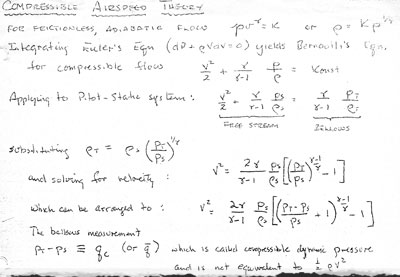 COMPRESSIBLE AIRSPEED THEORY
FOR FRICTIONLESS, ADIABATIC FLOW pv^γ = K or ρ = K p^(1/γ)
Integrating Euler's Eqn (dP + ρVdV = 0) yields Bernoulli's Eqn.
for compressible flow V²/2 + γ/(γ-1) P/ρ = Konst
Applying to Pitot-Static system: V²/2 + γ/(γ-1) Ps/ρs = γ/(γ-1) PT/ρT
FREE STREAM BELLOWS
substituting ρT = ρs (PT/Ps)^(1/γ)
and solving for velocity: V² = 2γ/(γ-1) Ps/ρs [(PT/Ps)^((γ-1)/γ) - 1]
which can be arranged to: V² = 2γ/(γ-1) Ps/ρs [((PT-Ps)/Ps + 1)^((γ-1)/γ) - 1]
The bellows measurement
PT - Ps ≡ qc (or q̄) which is called compressible dynamic pressure
and is not equivalent to ½ρV²